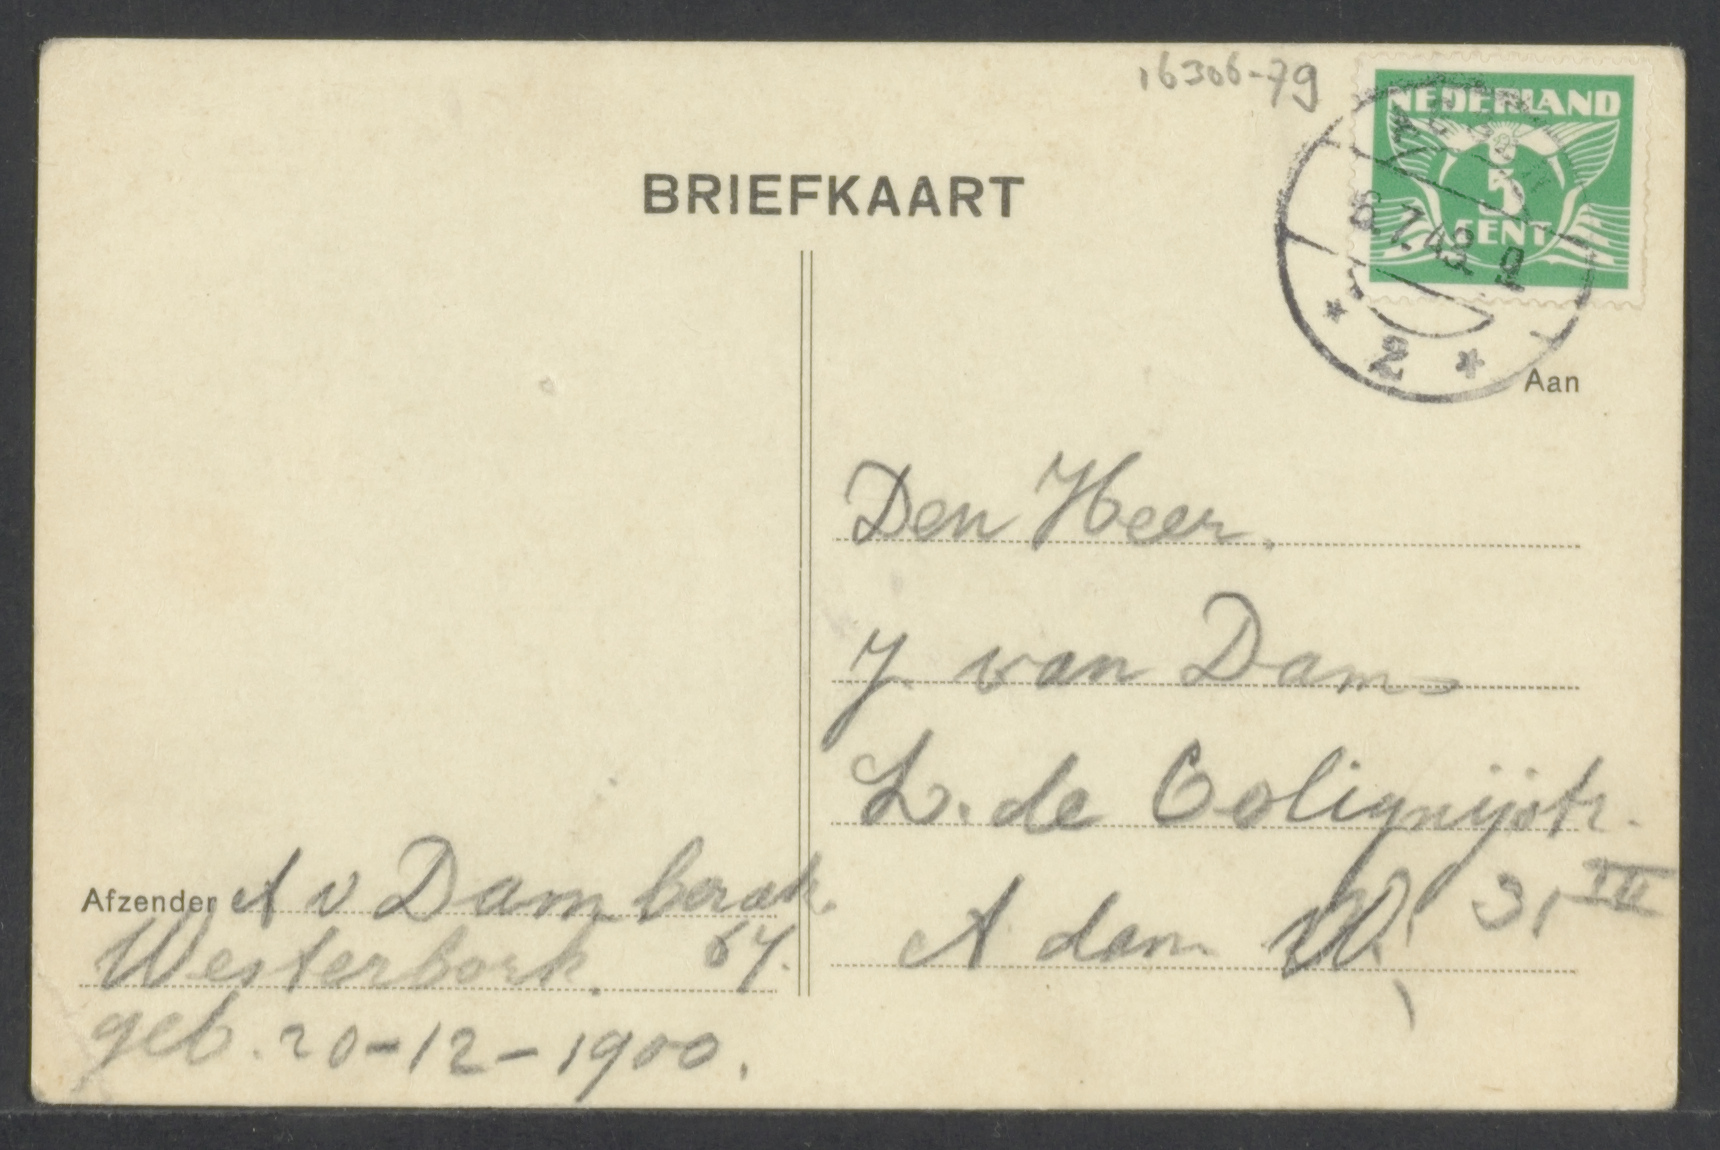 16306-79
NEDERLAND
5
CENT
6.7.43. 9
2
BRIEFKAART
Aan
Den Heer.
J. van Dam
L. de Colignijstr.
31 III
A dam W.
Afzender A v Dam barak.
Westerbork. 67.
geb. 20-12-1900.